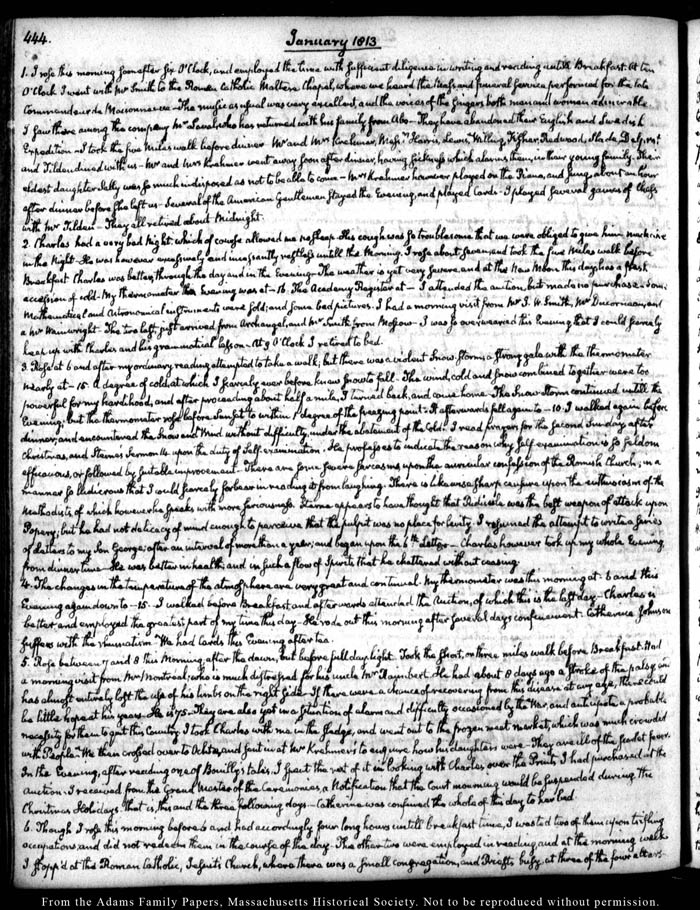 444.
January 1813
1. I rose this morning soon after six O'Clock, and employed the time with sufficient diligence in writing and reading until Breakfast. At ten
O'Clock I went with Mr Smith to the Roman Catholic Maltese Chapel, where we heard the Mass and funeral service performed for the late
Commandeur de Maisonneuve. The music as usual was very excellent, and the voices of the singers both men and women admirable.
I saw there among the company Mr Laval who has returned with his family from Abo. They have abandoned their English and Swedish
Expedition. I took the five Miles walk before dinner. Mr and Mrs Krehmer, Messrs Harris, Lewis, Willing, Fisher, Redwood,
and Tilden dined with us. Mr and Mrs Krehmer went away soon after dinner, having sickness which alarms them, in their young family. Their
eldest daughter Sally was so much indisposed as not to be able to come. Mrs Krehmer however played on the Piano, and sung about an hour
after dinner before she left us. Several of the American Gentlemen stayed the Evening, and played Cards. I played several games of Chess
with Mr Tilden. They all retired about Midnight.
2. Charles had a very bad Night which of course allowed me no sleep. His cough was so troublesome that we were obliged to give him
in the Night. He was however excessively and incessantly restless until the Morning. I rose about seven, and took the five Miles walk before
Breakfast. Charles was better, through the day and in the Evening. The weather is yet very severe, and at the New Moon this day, has a fresh
accession of cold. My thermometer this Evening was at -16. The Academy Register at — I attended the auction, but made no purchase. Some
Mathematical and Astronomical instruments were sold; and some bad pictures. I had a morning visit from Mr J. W. Smith, Mr and
a Mr Wainwright. The two last, just arrived from Archangel, and Mr Smith from Moscow. I was so overwearied this Evening that I could scarcely
keep up with Charles and his grammatical lesson. At 9 O'Clock I retired to bed.
3. Rose at 6 and after my ordinary reading attempted to take a walk; but there was a violent Snow storm, a strong gale with the thermometer
nearly at -15. A degree of cold at which I scarcely ever before knew snow to fall. The wind, cold and snow combined together were too
powerful for my hardihood, and after proceeding about half a mile, I turned back, and came home. The Snow storm continued until the
Evening; but the thermometer rose before Sunset to within 1 degree of the freezing point. It afterwards fell again to -10. I walked again before
dinner, and encountered the Snow and Wind without difficulty, under the abatement of the Cold. I read prayers for the second Sunday after
Christmas, and Sterne's Sermon 14 upon the duty of Self-examination. He professes to indicate the reason why self-examination is so seldom
efficacious, or followed by suitable improvement. There are some severe sarcasms upon the auricular confession of the Romish Church; in a
manner so ludicrous that I could scarcely forbear in reading it from laughing. There is likewise a sharp censure upon the enthusiasm of the
Methodists, of which however he speaks with more seriousness. Sterne appears to have thought that Ridicule was the best weapon of attack upon
Popery; but he had not delicacy of mind enough to perceive that the pulpit was no place for levity. I resumed the attempt to write a series
of letters to my Son George, after an interval of more than a year; and began upon the 6th Letter. Charles however took up my whole Evening
from dinner time. He was better in health; and in such a flow of spirits that he chattered without ceasing.
4. The changes in the temperature of the atmosphere are very great and continual. My thermometer was this morning at -6 and this
Evening again down to -15. I walked before Breakfast and afterwards attended the Auction, of which this is the last day. Charles is
better and employed the greatest part of my time this day. He rode out this morning after several days confinement. Catherine Johnson
suffers with the rheumatism. We had Cards this Evening after tea.
5. Rose between 7 and 8 this Morning after the dawn, but before full day light. Took the short, or three miles walk before Breakfast. Had
a morning visit from Mr Montréal; who is much distressed for his uncle Mr Raimbert. He had about 8 days ago a stroke of the palsy, and
has almost entirely lost the use of his limbs on the right side. If there were a chance of recovering from this disease at any age, there could
be little hope at his years. He is 75. They are also yet in a situation of alarm and difficulty occasioned by the War, and anticipate a probable
necessity for them to quit this Country. I took Charles with me in the sledge, and went out to the frozen meat market, which was much crowded
with People. We then crossed over to Ochta, and sent in at Mr Krehmer's to enquire how his daughters were. They are ill of the scarlet fever.
In the Evening, after reading one of Bouilly's tales, I spent the rest of it in looking with Charles over the Prints I had purchased at the
Auction. I received from the Grand Master of the Ceremonies, a Notification that the Court mourning would be suspended during the
Christmas Holidays. That is, this and the three following days. Catherine was confined the whole of this day to her bed.
6. Though I rose this morning before 6 and had accordingly four long hours until breakfast time, I wasted two of them upon trifling
occupations and did not redeem them in the course of the day. The other two were employed in reading and at the morning walk
I stopp'd at the Roman Catholic, Jesuits Church, where there was a small congregation, and Priests busy at three of the four altars.
From the Adams Family Papers, Massachusetts Historical Society. Not to be reproduced without permission.